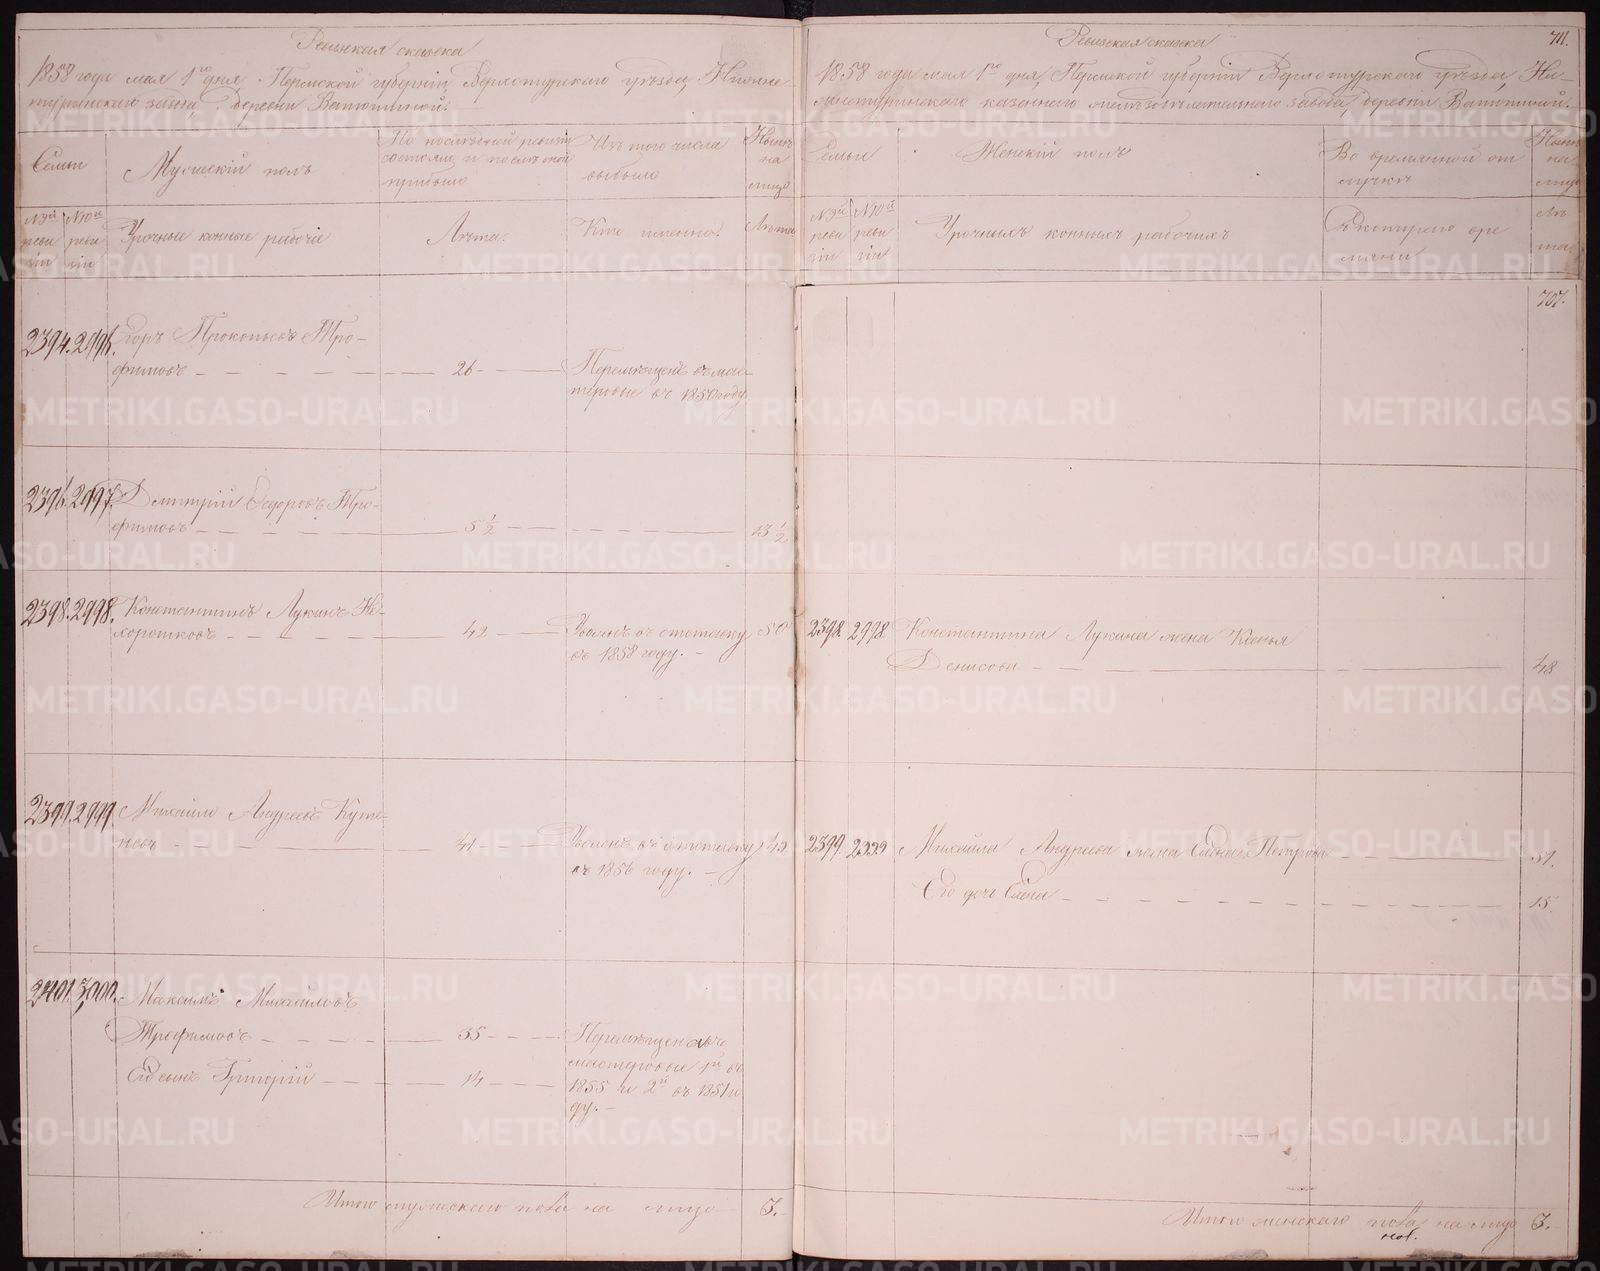 Ревизская сказка
1858 года мая 1го дня, Пермской губернии, Верхотурского уезда, Нижне-
туринского завода, деревни
Семьи
Мужескiй полъ
По последней ревизiи состояло и после оной прибыло
Изъ того числа выбыло
Ныне на лицо
№ 9й ревизiи
№ 10й ревизiи
Урочные конные рабочiе
Лета.
Кто именно.
Лета
2394. 2996. Егоръ Прокопьевъ Тро-
фимовъ 26 Перемещенъ въ мас-
теровые въ году.
2396. 2997. Дмитрiй Федоровъ Тро-
фимовъ 5 1/2 13 1/2
2398. 2998. Константинъ Лукинъ Не-
хорошковъ 42 Уволенъ въ отставку 50
въ 1858 году.
2399. 2999. Михайло Андреевъ Куте-
невъ 41 Уволенъ въ отставку
въ 1856 году.
2401. 3000. Максимъ Михайловъ
Трофимовъ 35 Перемещены въ
мастеровые 1й въ
Его сынъ Григорiй 14 1855 и 2й въ 1851 го
ду.
Итого мужескаго пола на лицо 3.
711.
Ревизская сказка
1858 года мая 1го дня, Пермской губернiи Верхотурского уезда, Ни-
жнетуринского казенного железоделательного завода, деревни
Семьи
Женскiй полъ
Во временной от
лучке
Ныне на лицо
№ 9й ревизiи
№ 10й ревизiи
Урочныхъ конныхъ рабочихъ
Съ котораго вре
мени
Лета
707.
2398 2998 Константина Лукина жена Ксенья
Денисова 48
2399. 2999 Михайла Андреева жена Елена Петрова 51.
Его дочь Елена 15.
Итого женскаго пола на лицо 3.
METRIKI.GASO-URAL.RU